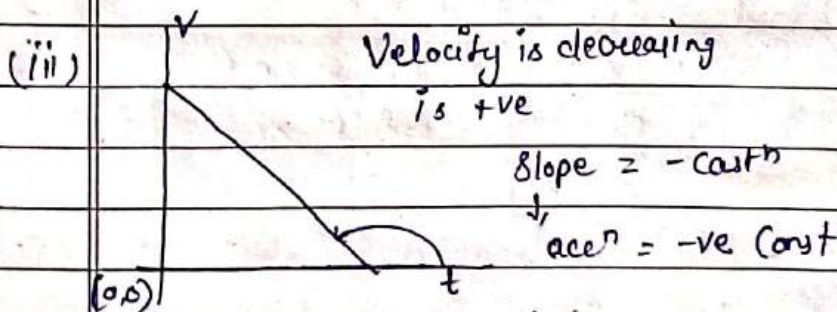 V
(iii) Velocity is decreasing
is +ve
Slope = -constⁿ
↓
accⁿ = -ve Const
(0,0) t